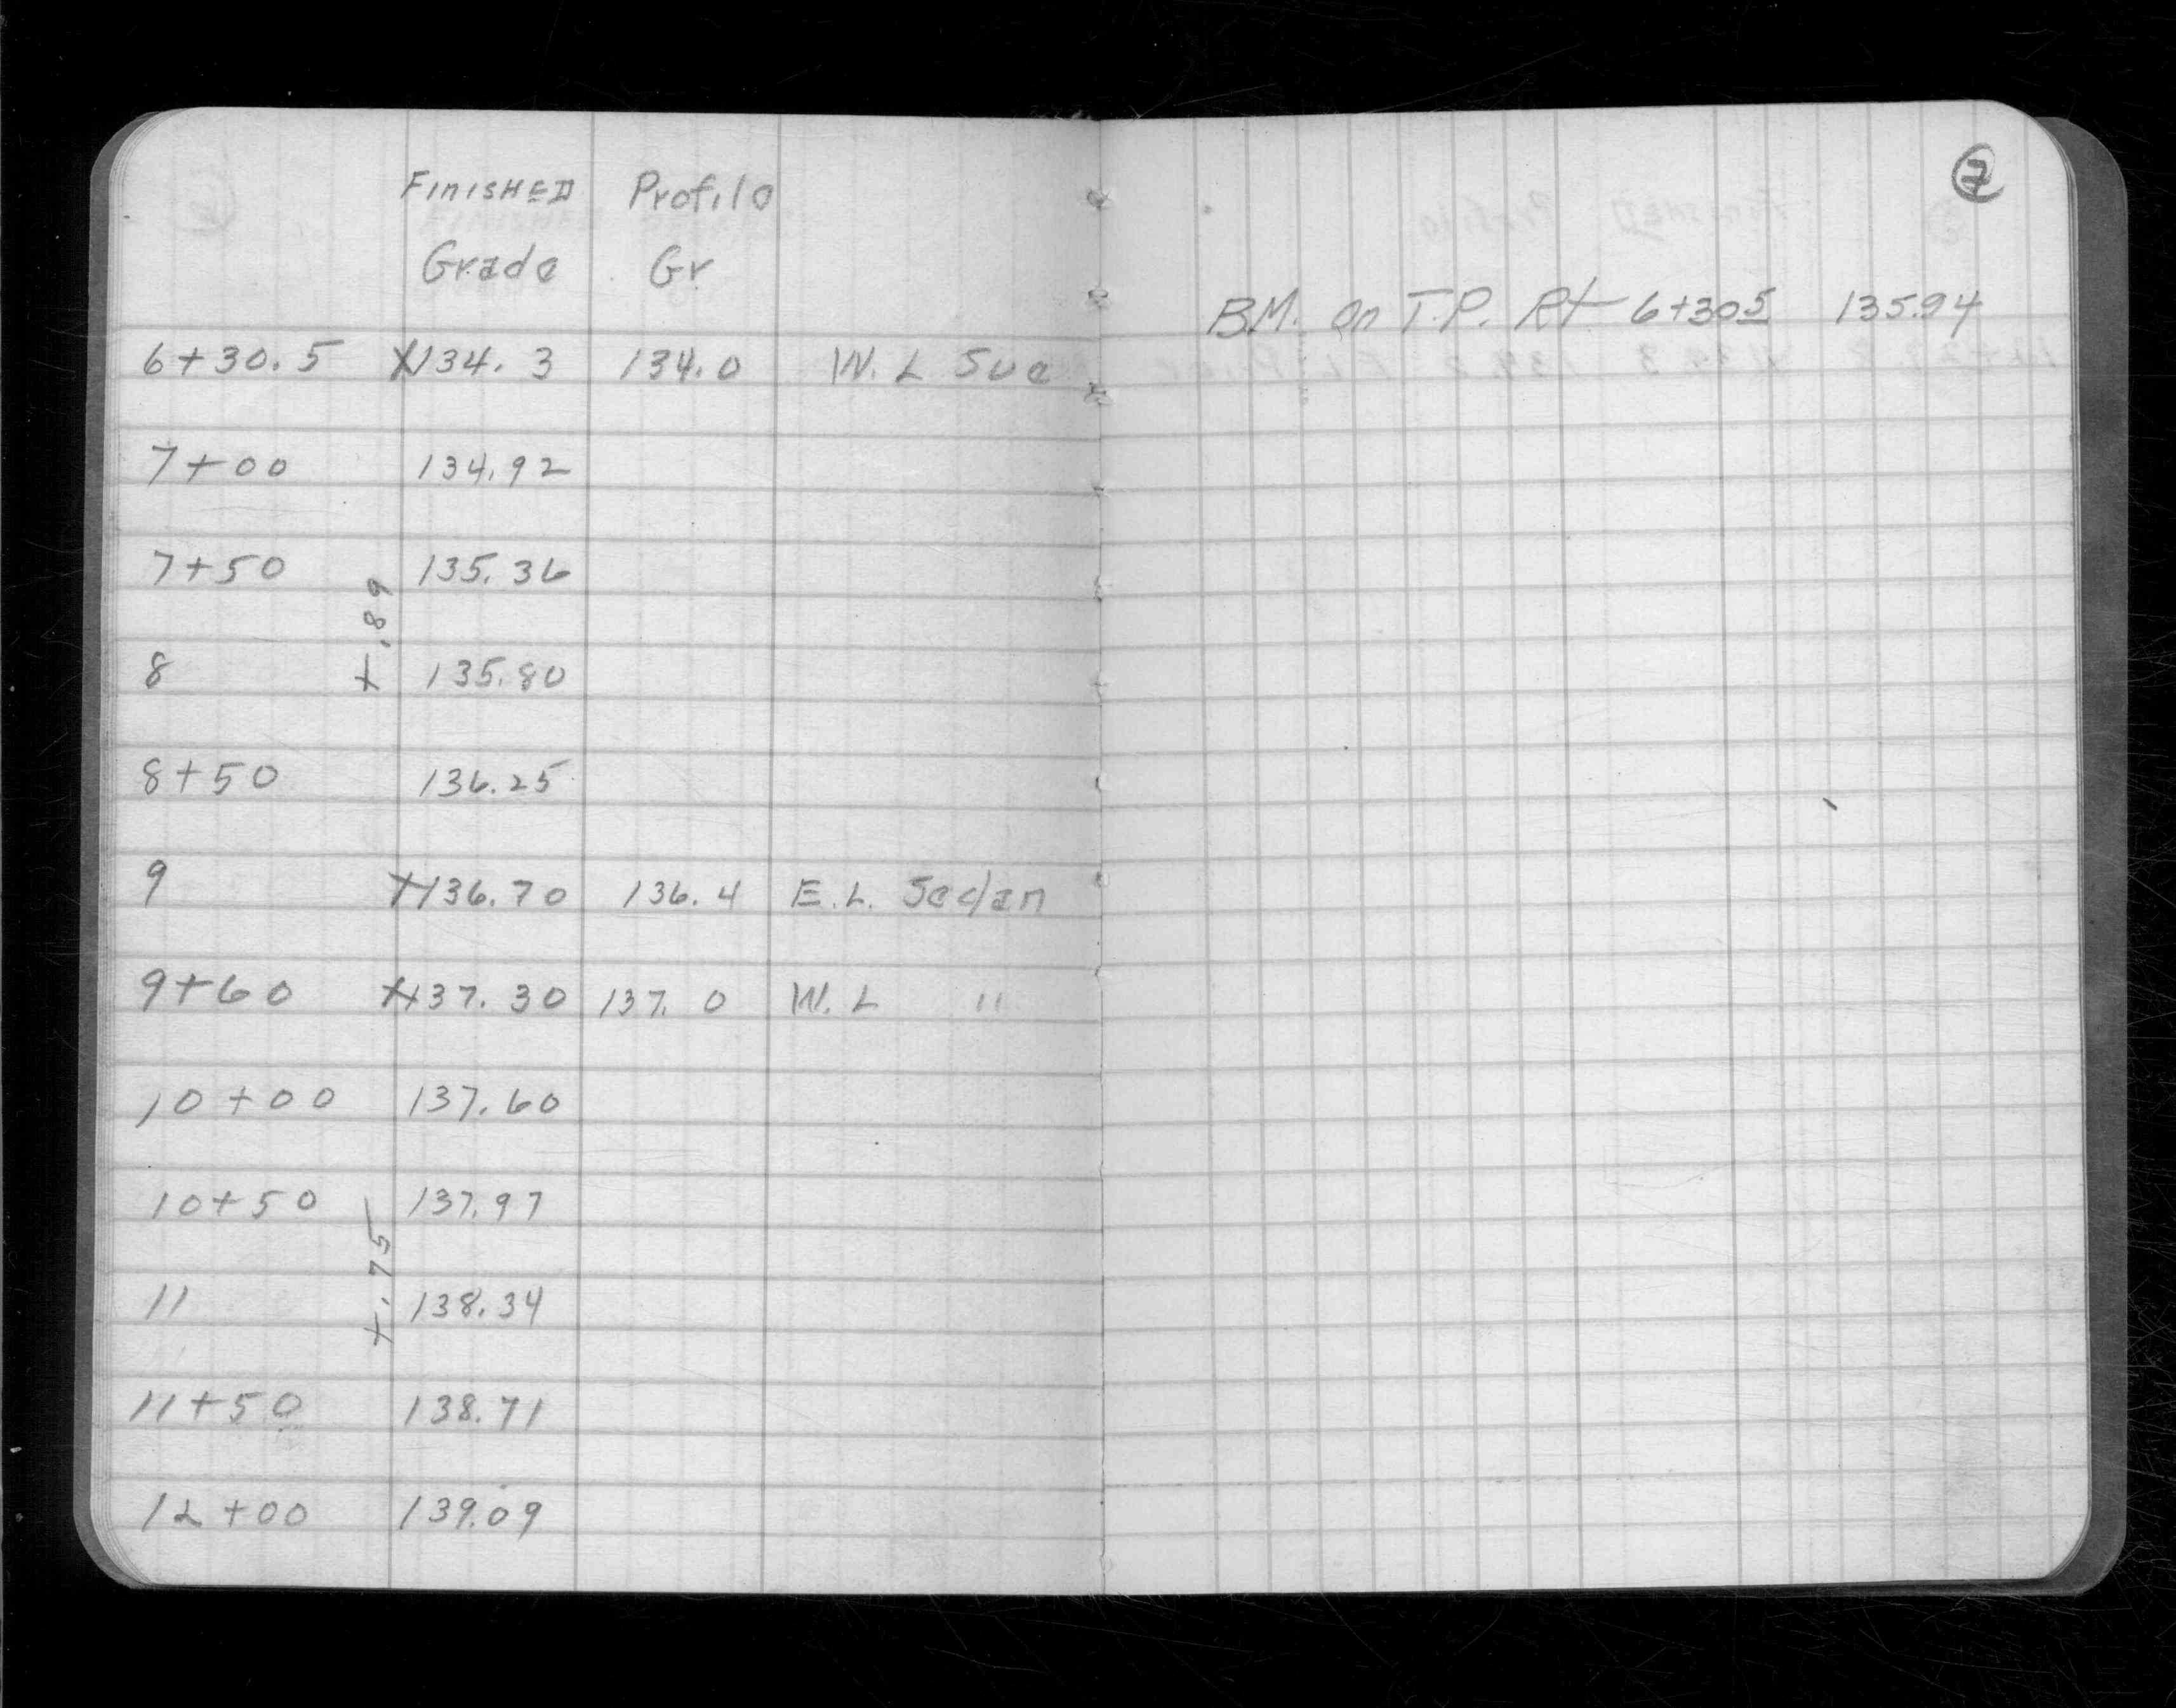 FINISHED Profile
Grade Gr
6+30.5 X134.3 134.0 W. L Sue
7+00 134.92
7+50 135.36
+.89
8 135.80
8+50 136.25
9 X136.70 136.4 E.L. Sedan
9+60 X137.30 137.0 W. L "
10+00 137.60
10+50 137.97
+.75
11 138.34
11+50 138.71
12+00 139.09
7
B.M. on T.P. Rt 6+305 135.94